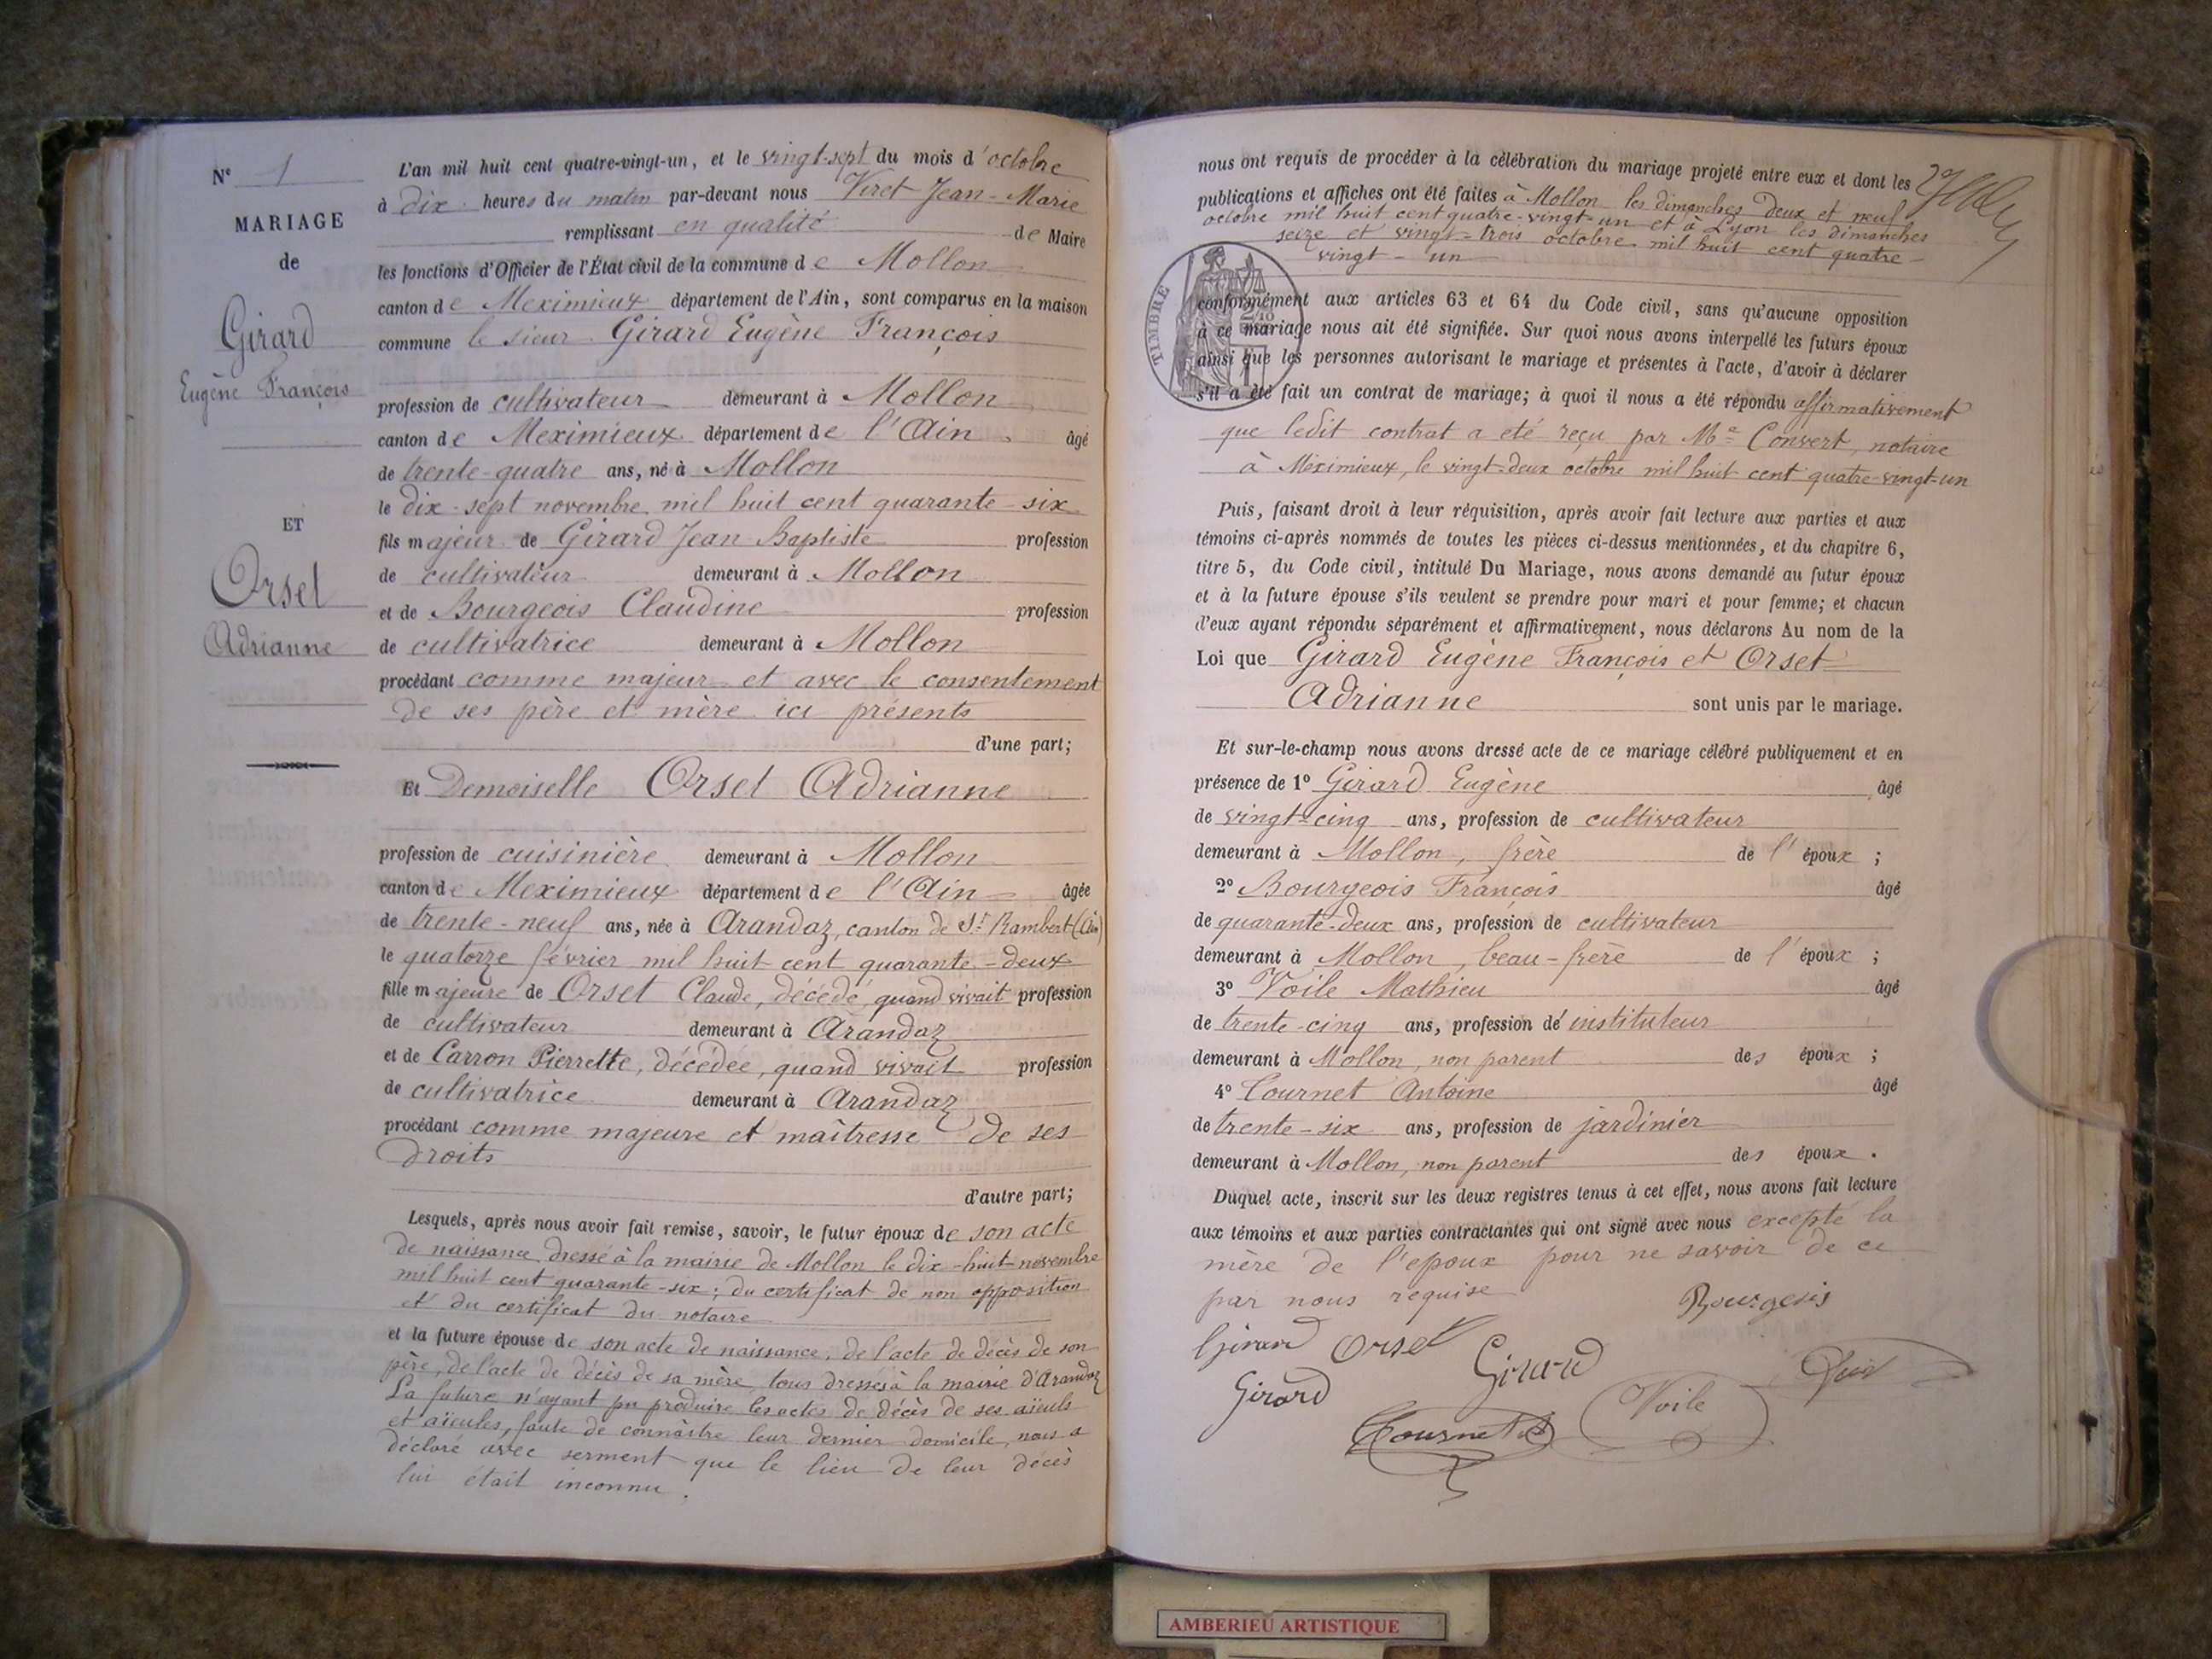 N° 1
MARIAGE
de
Girard
Eugène François
ET
Orset
Adrianne
L'an mil huit cent quatre-vingt-un, et le vingt-sept du mois d'octobre
à dix heures du matin par-devant nous Viret Jean-Marie
remplissant en qualité de Maire
les fonctions d'Officier de l'État civil de la commune de Mollon
canton de Meximieux département de l'Ain, sont comparus en la maison
commune le sieur Girard Eugène François
profession de cultivateur demeurant à Mollon
canton de Meximieux département de l'Ain âgé
de trente-quatre ans, né à Mollon
le dix-sept novembre mil huit cent quarante-six
fils majeur de Girard Jean Baptiste profession
de cultivateur demeurant à Mollon
et de Bourgeois Claudine profession
de cultivatrice demeurant à Mollon
procédant comme majeur et avec le consentement
de ses père et mère ici présents
d'une part;
Et Demoiselle Orset Adrianne
profession de cuisinière demeurant à Mollon
canton de Meximieux département de l'Ain âgée
de trente-neuf ans, née à Arandaz, canton de St Rambert (Ain)
le quatorze février mil huit cent quarante-deux
fille majeure de Orset Claude, décédé, quand vivait profession
de cultivateur demeurant à Arandaz
et de Carron Pierrette, décédée, quand vivait profession
de cultivatrice demeurant à Arandaz
procédant comme majeure et maîtresse de ses
droits
d'autre part;
Lesquels, après nous avoir fait remise, savoir, le futur époux de son acte
de naissance dressé à la mairie de Mollon le dix-huit novembre
mil huit cent quarante-six; du certificat de non opposition
et du certificat du notaire
et la future épouse de son acte de naissance, de l'acte de décès de son
père, de l'acte de décès de sa mère, tous dressés à la mairie d'Arandaz
La future n'ayant pu produire les actes de décès de ses aïeuls
et aïeules, faute de connaître leur dernier domicile, nous a
déclaré avec serment que le lieu de leur décès
lui était inconnu.
nous ont requis de procéder à la célébration du mariage projeté entre eux et dont les
publications et affiches ont été faites à Mollon les dimanches deux et neuf
octobre mil huit cent quatre-vingt-un et à Lyon les dimanches
seize et vingt-trois octobre mil huit cent quatre-
vingt-un
TIMBRE
conformément aux articles 63 et 64 du Code civil, sans qu'aucune opposition
à ce mariage nous ait été signifiée. Sur quoi nous avons interpellé les futurs époux
ainsi que les personnes autorisant le mariage et présentes à l'acte, d'avoir à déclarer
s'il a été fait un contrat de mariage; à quoi il nous a été répondu affirmativement
que ledit contrat a eté reçu par Me Convert, notaire
à Méximieux, le vingt-deux octobre mil huit cent quatre-vingt-un
Puis, faisant droit à leur réquisition, après avoir fait lecture aux parties et aux
témoins ci-après nommés de toutes les pièces ci-dessus mentionnées, et du chapitre 6,
titre 5, du Code civil, intitulé Du Mariage, nous avons demandé au futur époux
et à la future épouse s'ils veulent se prendre pour mari et pour femme; et chacun
d'eux ayant répondu séparément et affirmativement, nous déclarons Au nom de la
Loi que Girard Eugène François et Orset
Adrianne sont unis par le mariage.
Et sur-le-champ nous avons dressé acte de ce mariage célébré publiquement et en
présence de 1° Girard Eugène âgé
de vingt-cinq ans, profession de cultivateur
demeurant à Mollon, frère de l'époux;
2° Bourgeois François âgé
de quarante-deux ans, profession de cultivateur
demeurant à Mollon, beau-frère de l'époux;
3° Voile Mathieu âgé
de trente-cinq ans, profession de instituteur
demeurant à Mollon, non parent des époux;
4° Tournet Antoine âgé
de trente-six ans, profession de jardinier
demeurant à Mollon, non parent des époux.
Duquel acte, inscrit sur les deux registres tenus à cet effet, nous avons fait lecture
aux témoins et aux parties contractantes qui ont signé avec nous excepté la
mère de l'epoux pour ne savoir de ce
par nous requise
Bourgeois
Girard Orset Girard
Girard Tournet Voile
AMBERIEU ARTISTIQUE